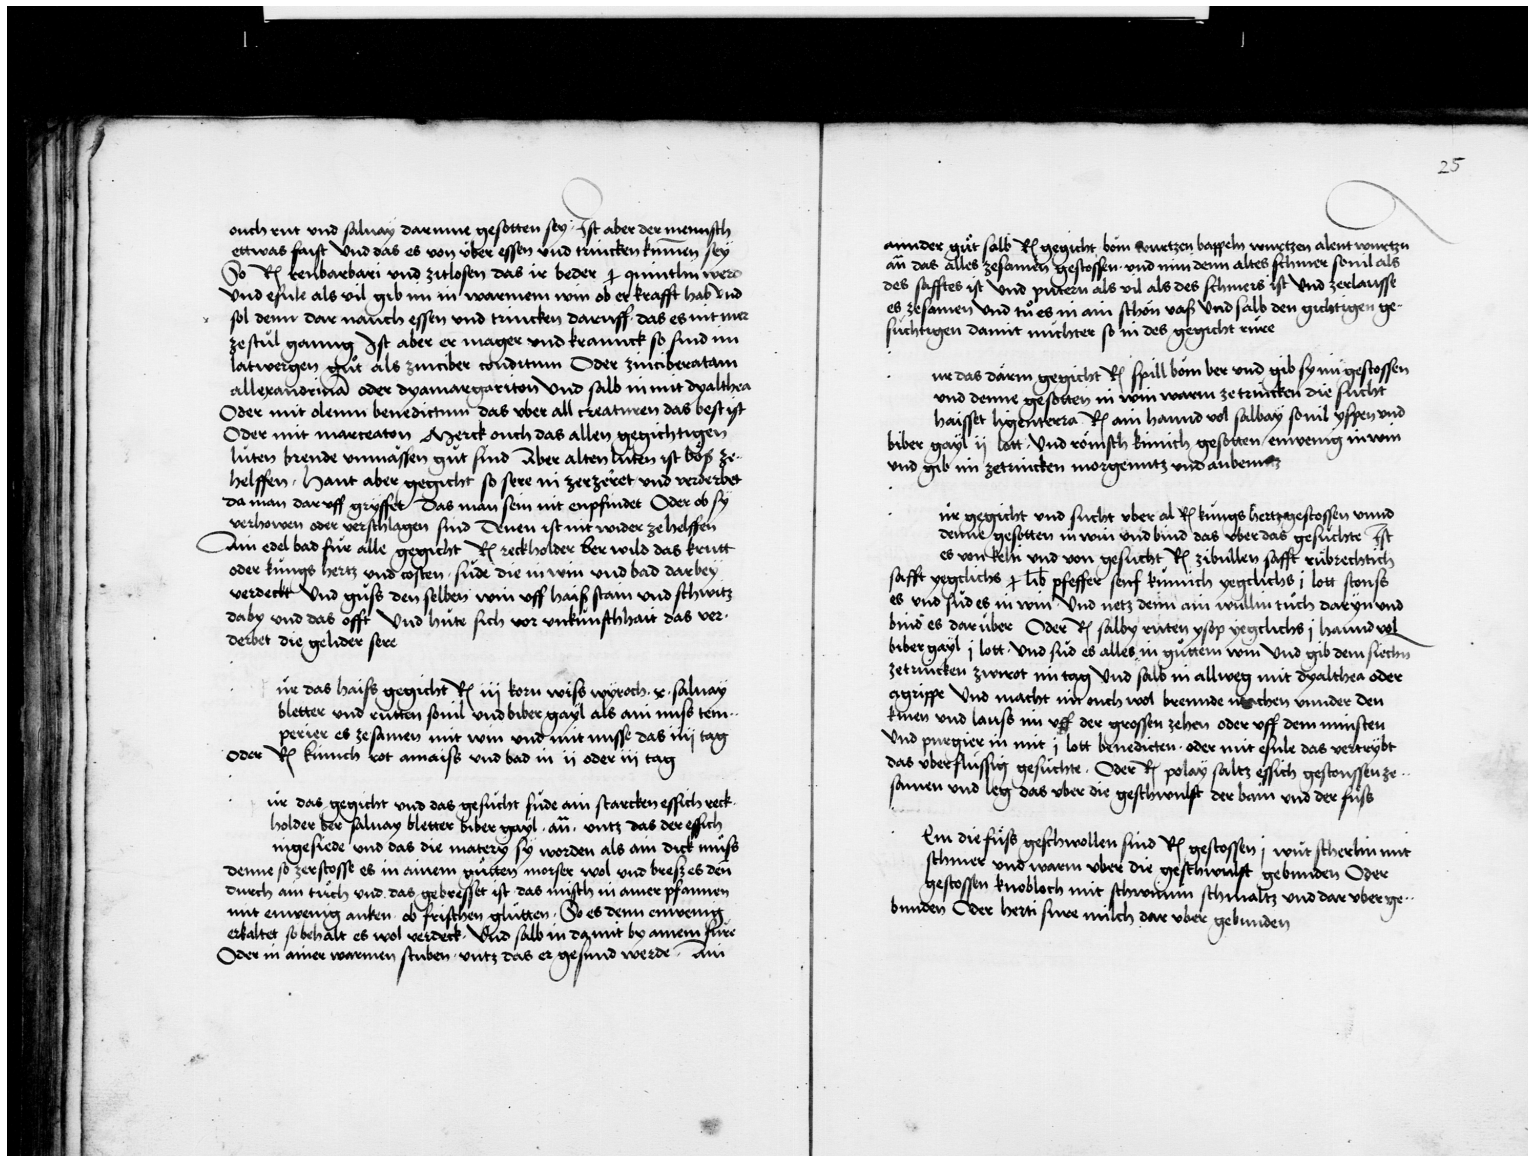 ouch rut vnd saluay darinne gesotten sey · Ist aber der mennsch
ettwas faist Vnd das es von über essen vnd trincken kumen sey
So Rx reubarbari vnd zitlosen das ir beder quintlin werd
Vnd esule als vil gib im in warmem win ob er krafft hab vnd
sol denn dar nauch essen vnd trincken daruff · das es nit mer
ze stůl ganng Ist aber er mager vnd krannck so sind im
latwergen gůt als zinciber conditum Oder zinciberatam
allexandrinam oder dyamargariton Vnd salb in mit dyalthea
Oder mit oleum benedictum das vber all creaturen das best ist
Oder mit marceaton Merck ouch das allen gegichtigen
lüten brende vnmässen gůt sind Aber alten lüten ist böß ze-
helffen · Haut aber gegicht so sere in zerzeret vnd verderbet
da man dar vff gryffet Das man sein nit enpfindet Oder ob sy
verhowen oder verschlagen sind Denen ist nit wider ze helffen
Ain edel bad für alle gegicht Rx reckholder ber wild das krutt
oder küngs hertz vnd costen · süde die in win vnd bad darbey
verdeckt Vnd güss den selben win vff haiß stain vnd schwitz
daby vnd das offt Vnd hüte sich vor vnkünschhait das ver-
derbet die gelider sere
ür das haiss gegicht Rx iij korn wiss wyroch · x · saluay
bletter vnd rutten souil vnd biber gayl als ain nuss tem-
perier es zesamen mit win vnd mit nusse das iij tag
Oder Rx kümich rot amaiss vnd bad in ij oder iij tag
ür das gegicht vnd das gesücht süde ain starcken essich reck-
holder ber saluay bletter biber gayl · an̄ · vntz das der essich
ingesiede vnd das die matery sy worden als ain dick můss
denne so zerstosse es in ainem gůtten morser wol vnd breß es den
durch ain tůch vnd das gebresset ist das misch in ainer pfannen
mit ainwenig anken · ob frischen glütten · So es denn ainwenig
erkaltet so behalt es wol verdeck · Vnd salb in damit by ainem füre
Oder in ainer warmen stuben · vntz das er gesund werde · Ain
25
annder gůt salb Rx gegicht böm wurtzen bappeln wurtzen alent wurtzn
an̄ das alles zesamen gestossen · vnd nim denn altes schmer souil als
des safftes ist Vnd putern als vil als des schmers ist Vnd zerlausse
es zesamen Vnd tů es in ain schön vaß Vnd salb den gichtigen ge-
süchtigen damit nüchter so in des gegicht rüre
ur das därm gegicht Rx spill böm ber vnd gib sy im gestossen
vnd denne gesotten in win warm ze trincken die sucht
haisset ligenterra Rx ain hannd vol salbay souil yspen vnd
biber gayl ij lott · Vnd römsch kümich gesotten ainwenig in win
vnd gib im ze trincken morgenntz vnd aubentz
ür gegicht vnd sucht vber al Rx küngs hertz gestossen vnnd
denne gesotten in win vnd bind das vber das gesüchte Ist
es von keln vnd von gesücht Rx zibullen safft rübrechtich
safft yegclichs lib pfeffer senf kümich yegclichs j lott stouss
es vnd süd es in win Vnd netz denn ain wullin tůch daryn vnd
bind es dar über Oder Rx salby ruten ysop yegclichs j hannd vol
biber gayl j lott · Vnd süd es alles in gůttem win Vnd gib dem siechn
ze trincken zwirot im tag Vnd salb in allweg mit dyalthea oder
agrippe Vnd macht im ouch wol brennde machen vnnder den
knien vnd lauss im vff der grossen zehen oder vff dem minsten
Vnd purgier in mit j lott benedicten · oder mit esule das vertrybt
das vberflüssig gesüchte · Oder Rx polay saltz essich gestoussen ze-
samen vnd leg das vber die geschwulst der bain vnd der füss
Em die füss geschwollen sind Rx gestossen j wůt scherlin mit
schmer vnd warm vber die geschwulst gebunden Oder
gestossen knobloch mit schwinin schmaltz vnd dar vber ge-
bunden Oder herti sure milch dar vber gebunden